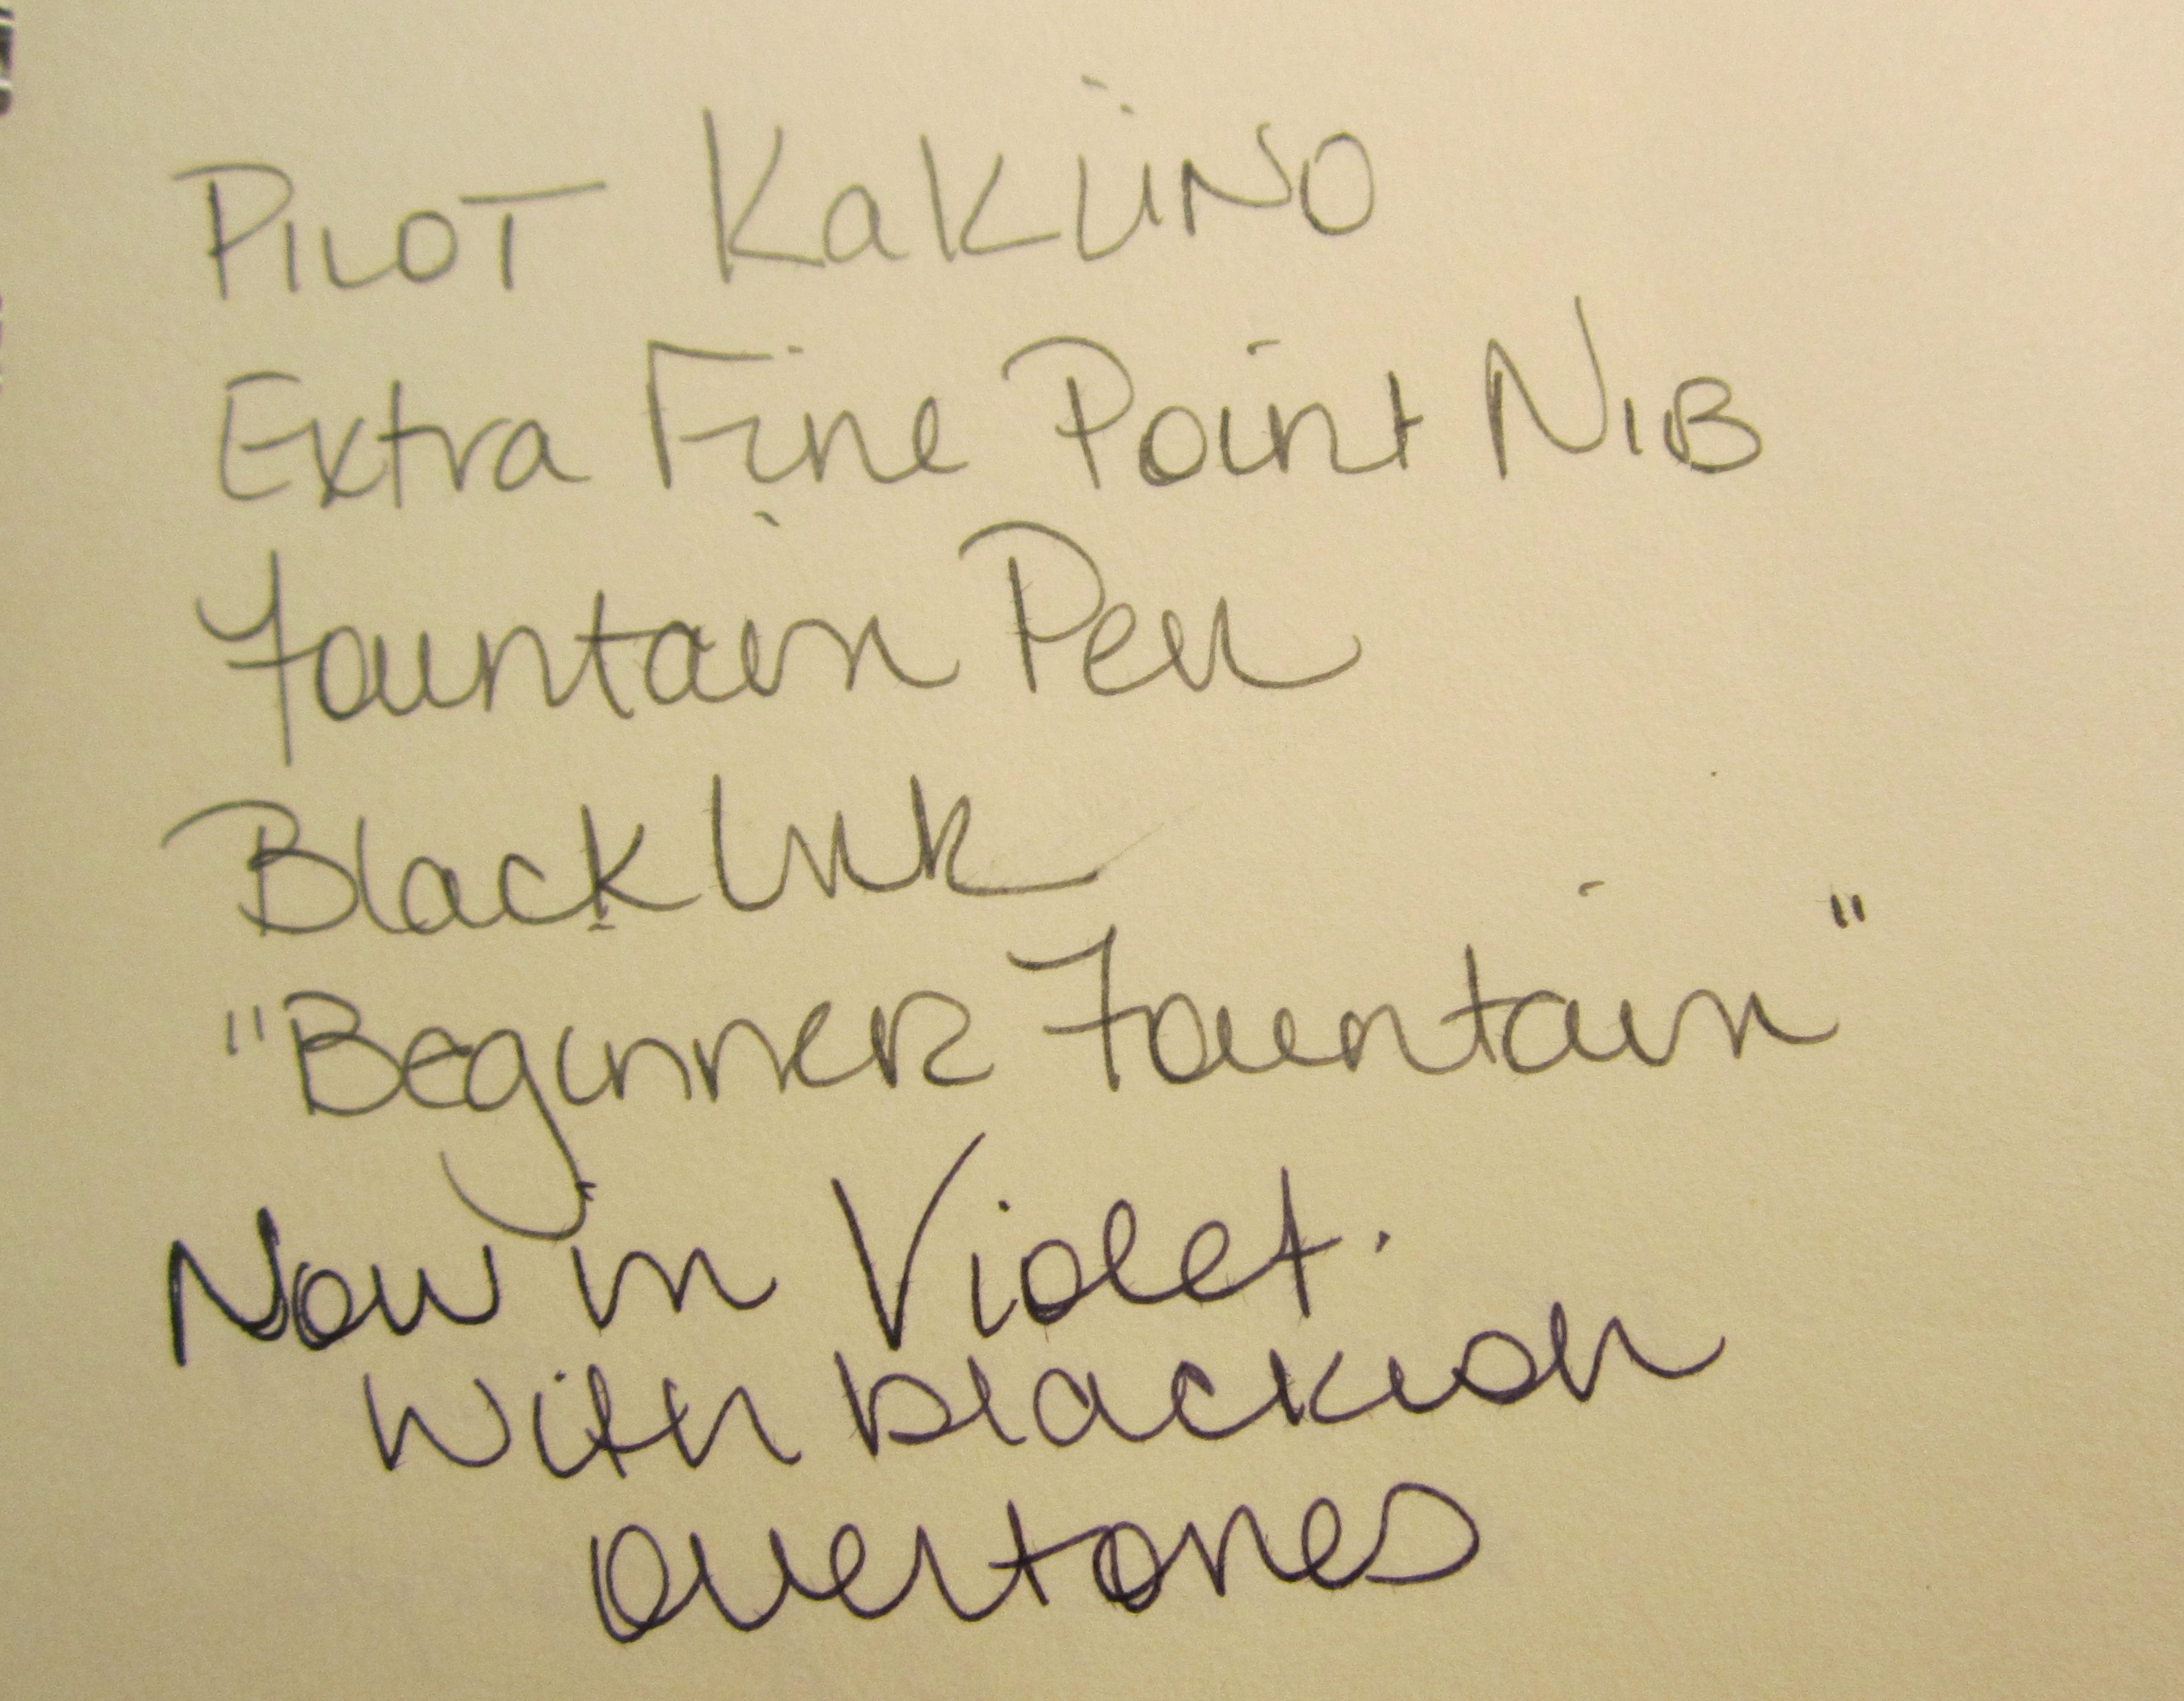 PILOT KaKüNO
Extra Fine Point NIB
Fountain Pen
Black Ink
"Beginner Fountain"
Now in Violet.
With blackish
overtones